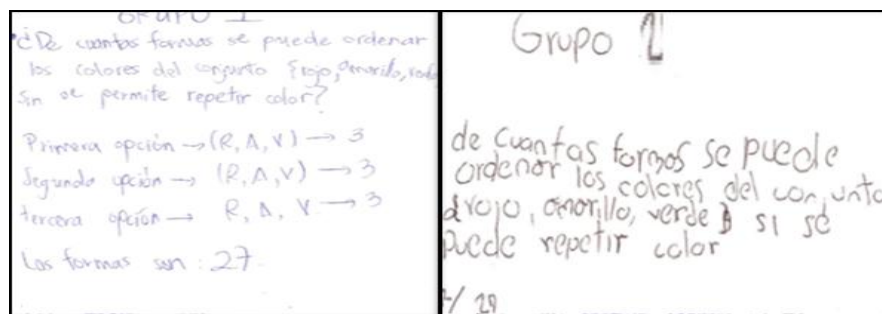 GRUPO I
¿De cuantas formas se puede ordenar
los colores del conjunto {rojo, Amarillo,
se permite repetir color?
Primera opción → (R, A, V) → 3
Segunda opción → (R, A, V) → 3
tercera opción → R, A, V → 3
Las formas son: 27
Grupo 2
de cuantas formas se puede
ordenar los colores del conjunto
rojo, amarillo, verde } si se
puede repetir color